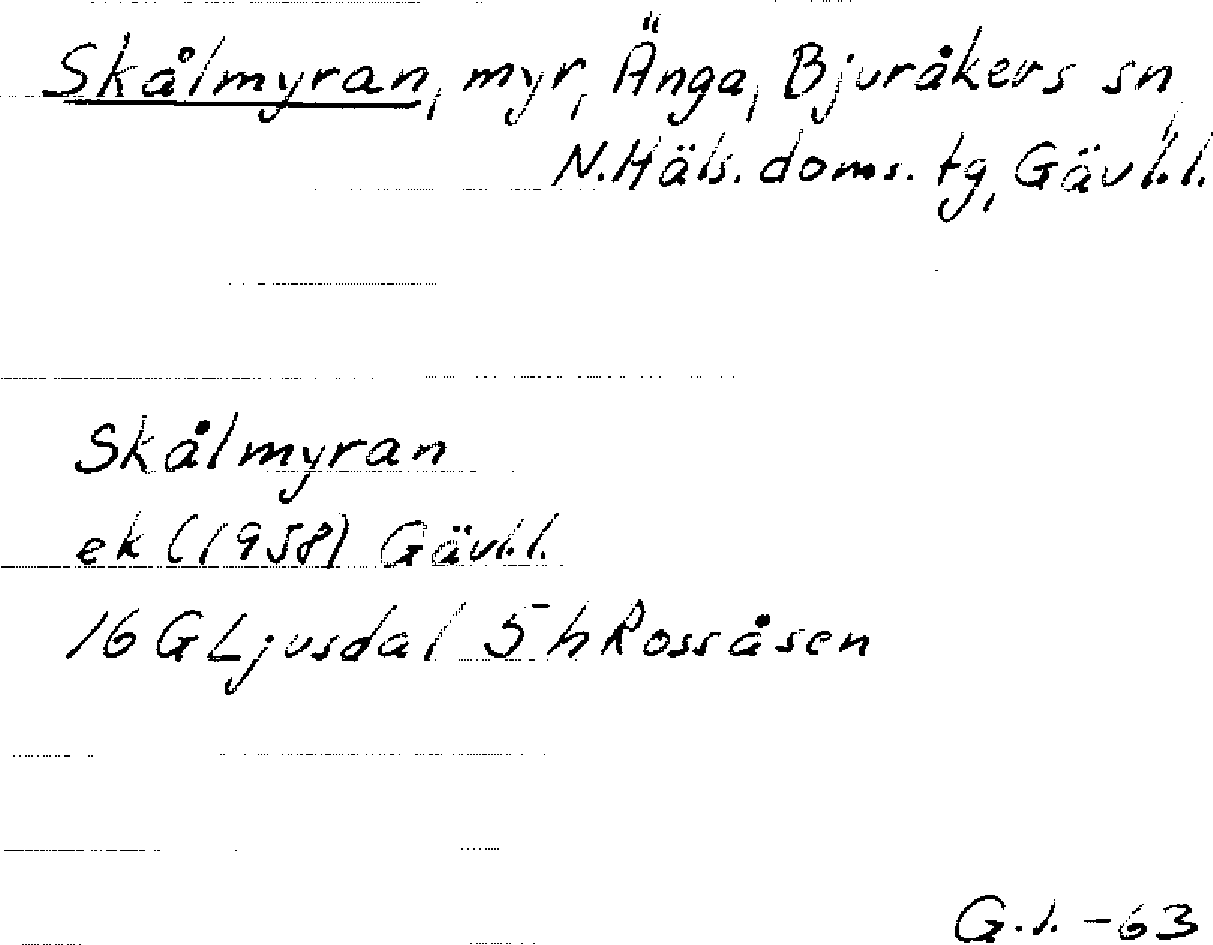 Skålmyran, myr, Änga, Bjuråkers sn,
N. Häls. doms. tg, Gävl.l.
Skålmyran
ek (1958) Gävl.l.
16 G Ljusdal 5 h Rossåsen
G.l. -63